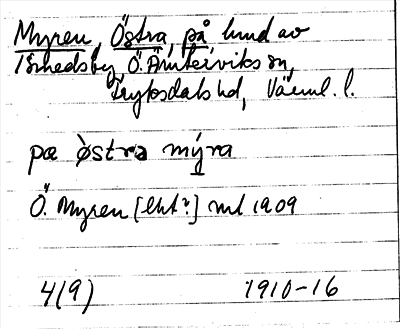 Myren, Östra, på hmd av
Smedsby, Ö. Ämterviks sn,
Fryksdals hd, Värml. l.
pæ òstrə mýra
Ö. Myren [Ekt?] ml 1909
4(9) 1910-16